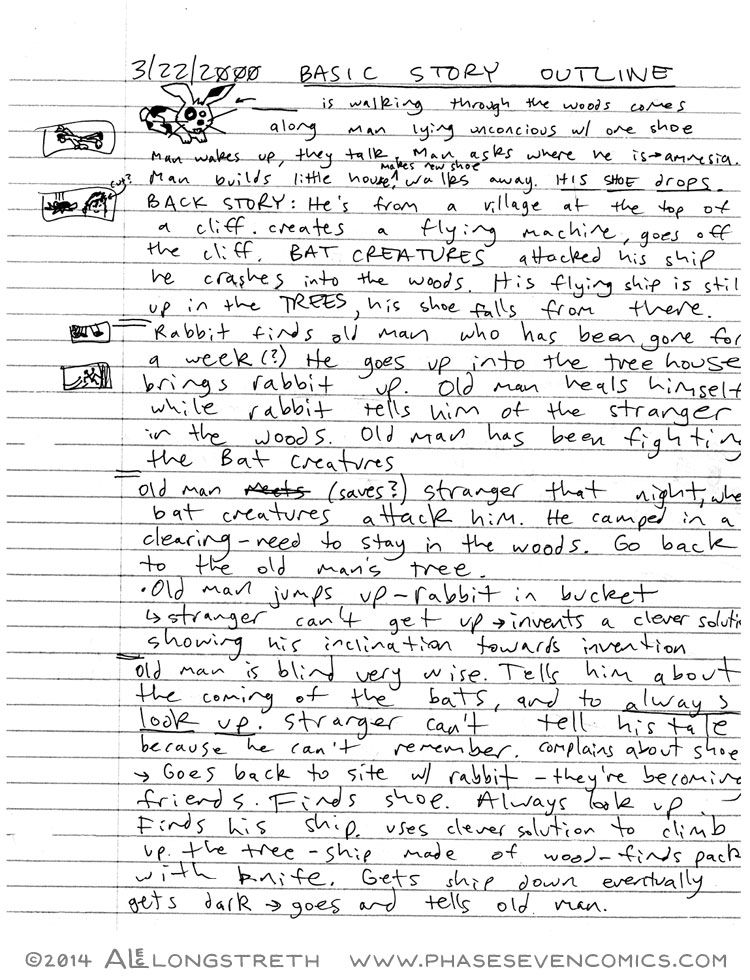 3/22/2000 BASIC STORY OUTLINE
← ______ is walking through the woods comes
along man lying unconcious w/ one shoe
Man wakes up, they talk. Man asks where he is → amnesia.
makes new shoe
Man builds little house, walks away. HIS SHOE drops.
cut?
BACK STORY: He's from a village at the top of
a cliff. creates a flying machine, goes off
the cliff. BAT CREATURES attacked his ship
he crashes into the woods. His flying ship is stil
up in the TREES, his shoe falls from there.
Rabbit finds old man who has been gone for
a week (?) He goes up into the tree house
brings rabbit up. Old man heals himself
while rabbit tells him of the stranger
in the woods. Old man has been fighting
the Bat Creatures
Old man meets (saves?) stranger that night, whe
bat creatures attack him. He camped in a
clearing - need to stay in the woods. Go back
to the old man's tree.
• Old man jumps up - rabbit in bucket
↳ stranger can't get up → invents a clever soluti
showing his inclination towards invention
Old man is blind very wise. Tells him about
the coming of the bats, and to always
look up. Stranger can't tell his tale
because he can't remember. complains about shoe
→ Goes back to site w/ rabbit - they're becoming
friends. Finds shoe. Always look up.
Finds his ship. uses clever solution to climb
up. the tree - ship made of wood - finds pack
with knife. Gets ship down eventually
gets dark → goes and tells old man.
©2014 ALEC LONGSTRETH WWW.PHASESEVENCOMICS.COM